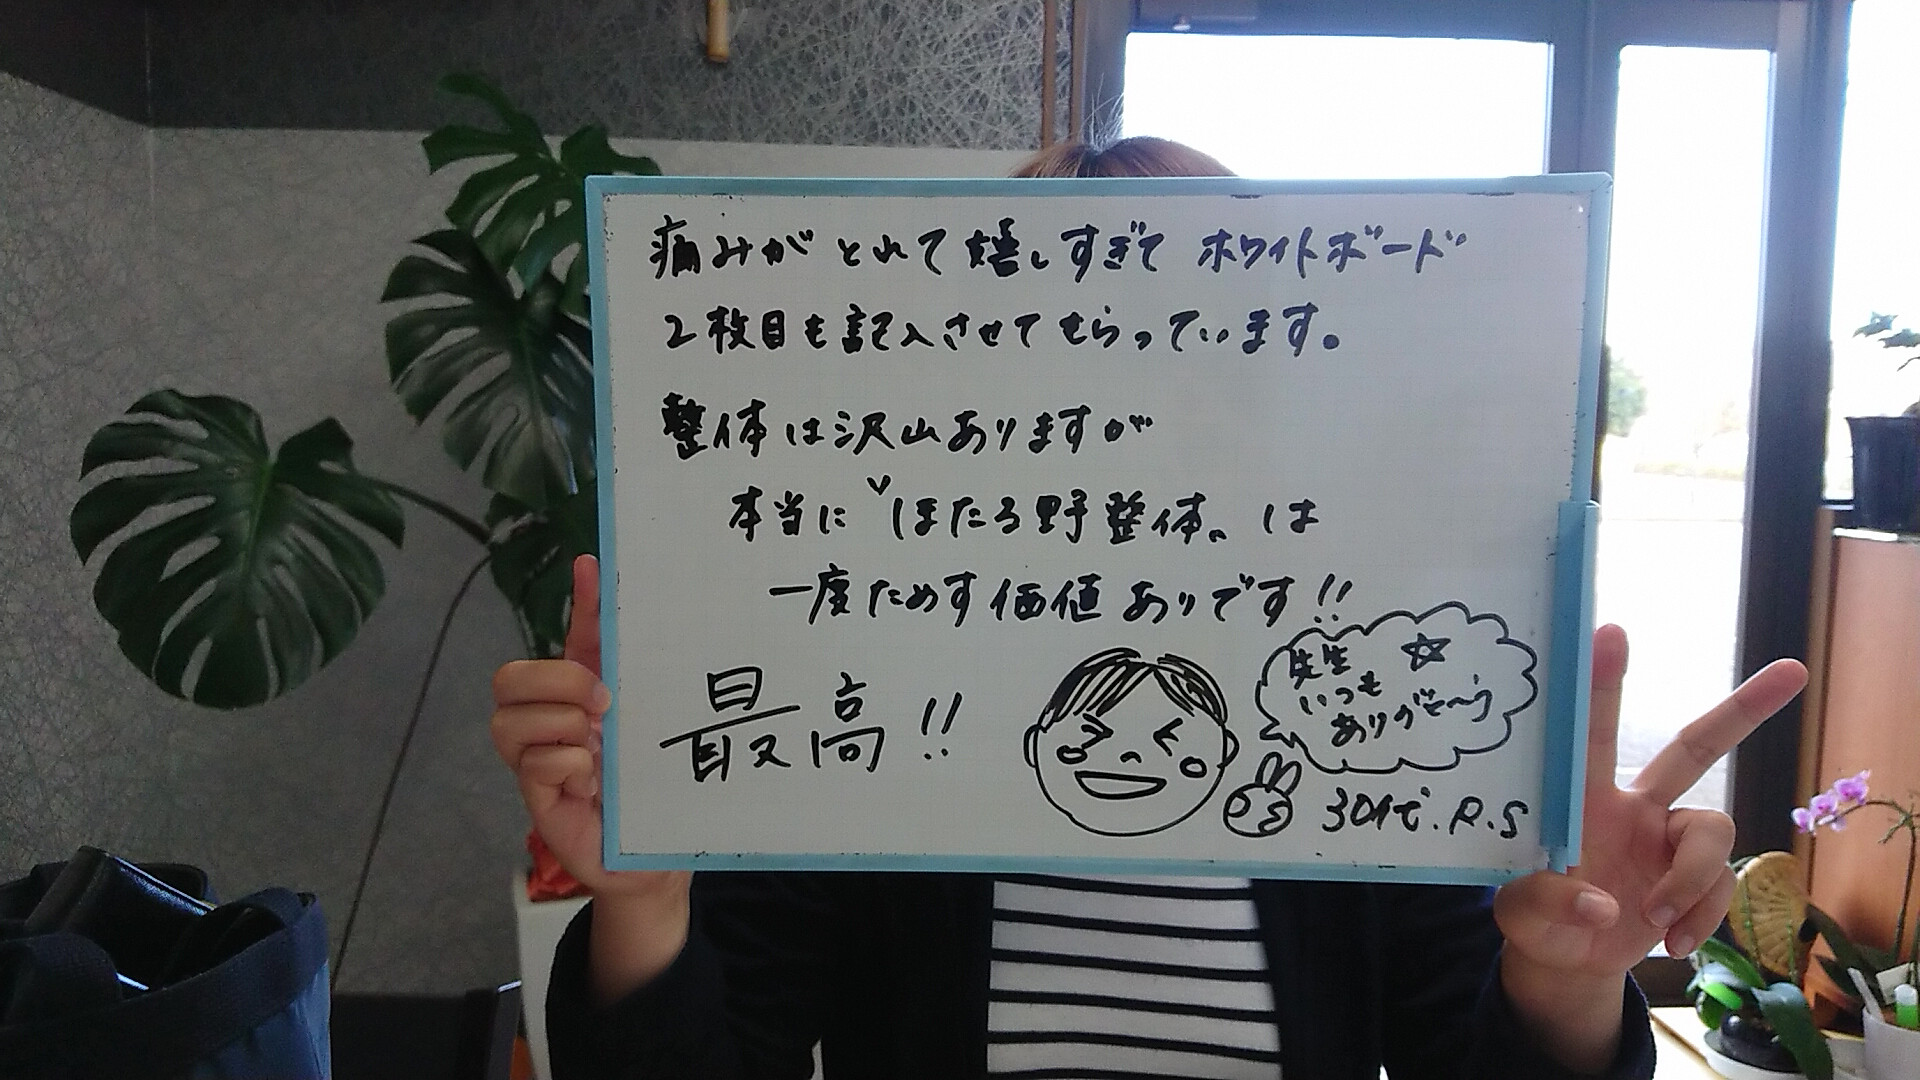 痛みがとれて嬉しすぎてホワイトボード
2枚目も記入させてもらっています。
整体は沢山ありますが
本当に"ほたる野整体"は
一度ためす価値ありです!!
最高!!
先生☆
いつも
ありがと〜う
30代.R.S